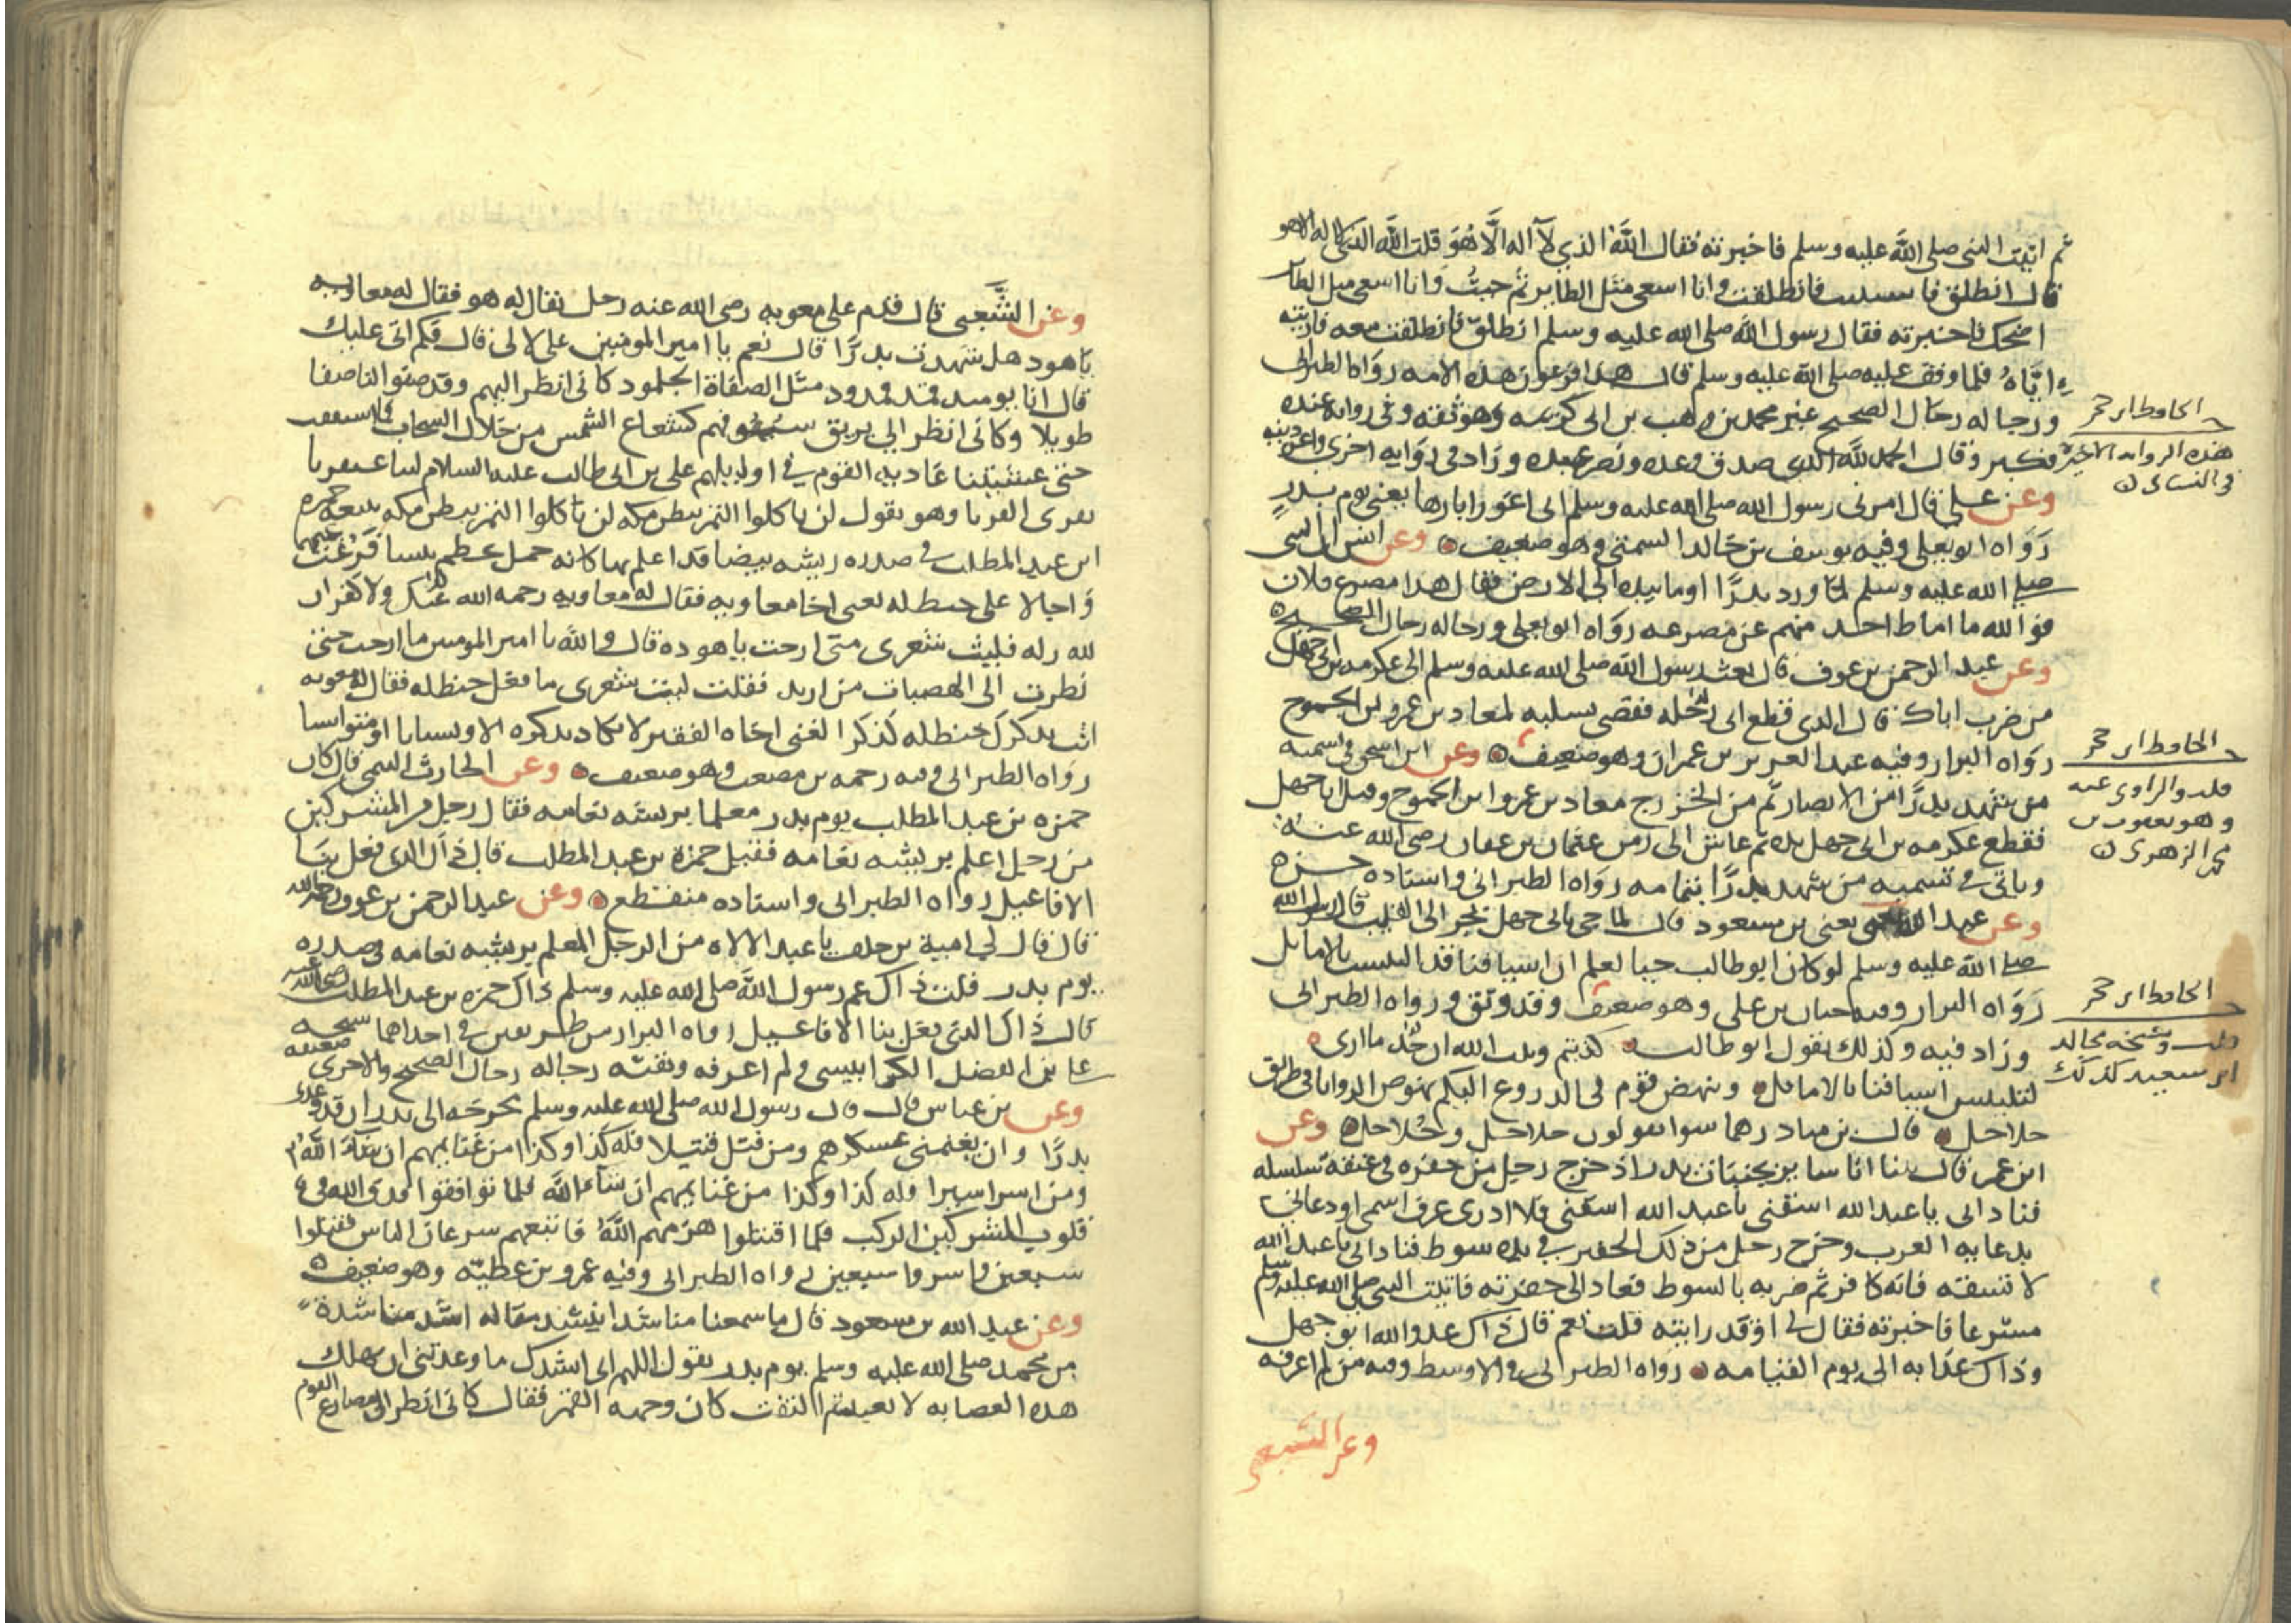 ثم اتيت النبي صلى الله عليه وسلم فاخبرته فقال الله الذي لا اله الا هو قلت الله الذي لا اله الا هو
قال انطلق فاستثبت فانطلقت وانا اسعى مثل الطاير ثم جيت وانا اسعى مثل الطاير
اضحك فاخبرته فقال رسول الله صلى الله عليه وسلم انطلق فانطلقت معه فاريته
اياه فلما وقف عليه صلى الله عليه وسلم قال هذا فرعون هذه الامه رواه الطبراني
ورجاله رجال الصحيح غير محمد بن وهب بن ابي كريمه وهو ثقه وفي روايه عنده
فكبر وقال الحمد لله الذي صدق وعده ونصر عبده وزاد في روايه اخرى واعز دينه
وعن علي قال امرني رسول الله صلى الله عليه وسلم ان اعور ابارها يعني يوم بدر
رواه ابو يعلى وفيه يوسف بن خالد السمتي وهو ضعيف وعن انس ان النبي
صلى الله عليه وسلم لما ورد بدرا اوما بيده الى الارض فقال هذا مصرع فلان
فوالله ما اماط احد منهم عن مصرعه رواه ابو يعلى ورجاله رجال الصحيح
وعن عبد الرحمن بن عوف قال بعث رسول الله صلى الله عليه وسلم الى عكرمه بن ابي جهل
من ضرب اباك قال الذي قطع ابي رجله فقضى بسلبه لمعاد بن عمرو بن الجموح
رواه البزار وفيه عبد العزيز بن عمران وهو ضعيف وعن ابن اسحق في تسميه
من شهد بدرا من الانصار ثم من الخزرج معاد بن عمرو ابن الجموح وقتل ابا جهل
فقطع عكرمه بن ابي جهل يده ثم عاش الى زمن عثمان بن عفان رضي الله عنه
وياتي في تسميه من شهد بدرا بتمامه رواه الطبراني واسناده حسن
وعن عبد الله يعني بن مسعود قال لما جي بابي جهل يجر الى القليب قال رسول الله
صلى الله عليه وسلم لو كان ابو طالب حيا لعلم ان اسيافنا قد التبست بالاماثل
رواه البزار وفيه حبان بن علي وهو ضعيف وقد وثق ورواه الطبراني
وزاد فيه وكذلك يقول ابو طالب كذبتم وبيت الله ان جد ما ارى
لتلتبس اسيافنا بالاماثل وينهض قوم في الدروع اليكم نهوض الروايا في طريق
حلاحل قال بن مبادر هما سوا يقولون حلاحل وجلاجل وعن
ابن عمر قال بينا انا ساير بجنبات بدر اذ خرج رجل من حفره في عنقه سلسله
فناداني يا عبد الله اسقني يا عبد الله اسقني فلا ادري عرف اسمي او دعاني
بدعايه العرب وخرج رجل من ذلك الحفير في يده سوط فناداني يا عبد الله
لا تسقه فانه كافر ثم ضربه بالسوط فعاد الى حفرته فاتيت النبي صلى الله عليه وسلم
مسرعا فاخبرته فقال لي اوقد رايته قلت نعم قال ذاك عدو الله ابو جهل
وذاك عذابه الى يوم القيامه رواه الطبراني في الاوسط وفيه من لم اعرفه
وعن الشعبي
الحافظ ابن حجر
هذه الروايه الاخيره
في النسائي
الحافظ ابن حجر
قلت والراوي عنه
وهو يعقوب بن
محمد الزهري
الحافظ ابن حجر
قلت وشيخه مجالد
ابن سعيد كذلك
وعن الشعبي قال قدم على معويه رضي الله عنه رجل يقال له هو فقال له معاويه
يا هود هل شهدت بدرا قال نعم يا امير المومنين علي لا لي قال فكم اتى عليك
قال انا يوميد قمد قمدود مثل الصفاة الجلمود كاني انظر اليهم وقد صفوا لنا صفا
طويلا وكاني انظر الى بريق سيوفهم كشعاع الشمس من خلال السحاب فما استفقت
حتى غشيتنا عاديه القوم في اوايلهم علي بن ابي طالب عليه السلام ليثا عبقريا
يفري الفريا وهو يقول لن ياكلوا التمر ببطن مكه لن ياكلوا التمر ببطن مكه يتبعه حمزه
ابن عبد المطلب في صدره ريشه بيضا قد اعلم بها كانه جمل يحطم يبسا فرغت عنهما
واحالا على حنظله يعني اخا معاويه فقال له معاويه رحمه الله
لله زله فليت شعري متى ارحت يا هوده قال والله يا امير المومنين ما ارحت حتى
نظرت الى الهضبات من اربد فقلت ليت شعري ما فعل حنظله فقال له معويه
انت بذكرك حنظله كذكر الغني اخاه الفقير لا يكاد يذكره الا
رواه الطبراني وفيه رحمه بن مصعب وهو ضعيف وعن الحارث التيمي قال كان
حمزه بن عبد المطلب يوم بدر معلما بريشه نعامه فقال رجل من المشركين
من رجل اعلم بريشه نعامه فقيل حمزه بن عبد المطلب قال ذاك الذي فعل بنا
الافاعيل رواه الطبراني واسناده منقطع وعن عبد الرحمن بن عوف
قال قال لي امية بن خلف يا عبد الالاه من الرجل المعلم بريشه نعامه في صدره
يوم بدر قلت ذاك عم رسول الله صلى الله عليه وسلم ذاك حمزه بن عبد المطلب
قال ذاك الذي فعل بنا الافاعيل رواه البزار من طريقين في احداهما شيخه
علي بن الفضل الكرابيسي ولم اعرفه وبقيه رجاله رجال الصحيح والاخرى ضعيفه
وعن بن عباس قال قال رسول الله صلى الله عليه وسلم مخرجه الى بدر ان قد وعدني
بدرا وان يغنمني عسكرهم ومن قتل قتيلا فله كذا وكذا من غنايمهم ان شاء الله
ومن اسر اسيرا فله كذا وكذا من غنايمهم ان شاء الله فلما تواقفوا قذف الله في
قلوب المشركين الرعب فلما اقتتلوا هزمهم الله فاتبعهم سرعان الناس فقتلوا
سبعين واسروا سبعين رواه الطبراني وفيه عمرو بن عطيه وهو ضعيف
وعن عبد الله بن مسعود قال ما سمعنا مناشدا ينشد مقاله اشد مناشدة
من محمد صلى الله عليه وسلم يوم بدر يقول اللهم اني انشدك ما وعدتني ان تهلك
هذه العصابه لا تعبد ثم التفت كان وجهه القمر فقال كاني انظر الى مصارع القوم